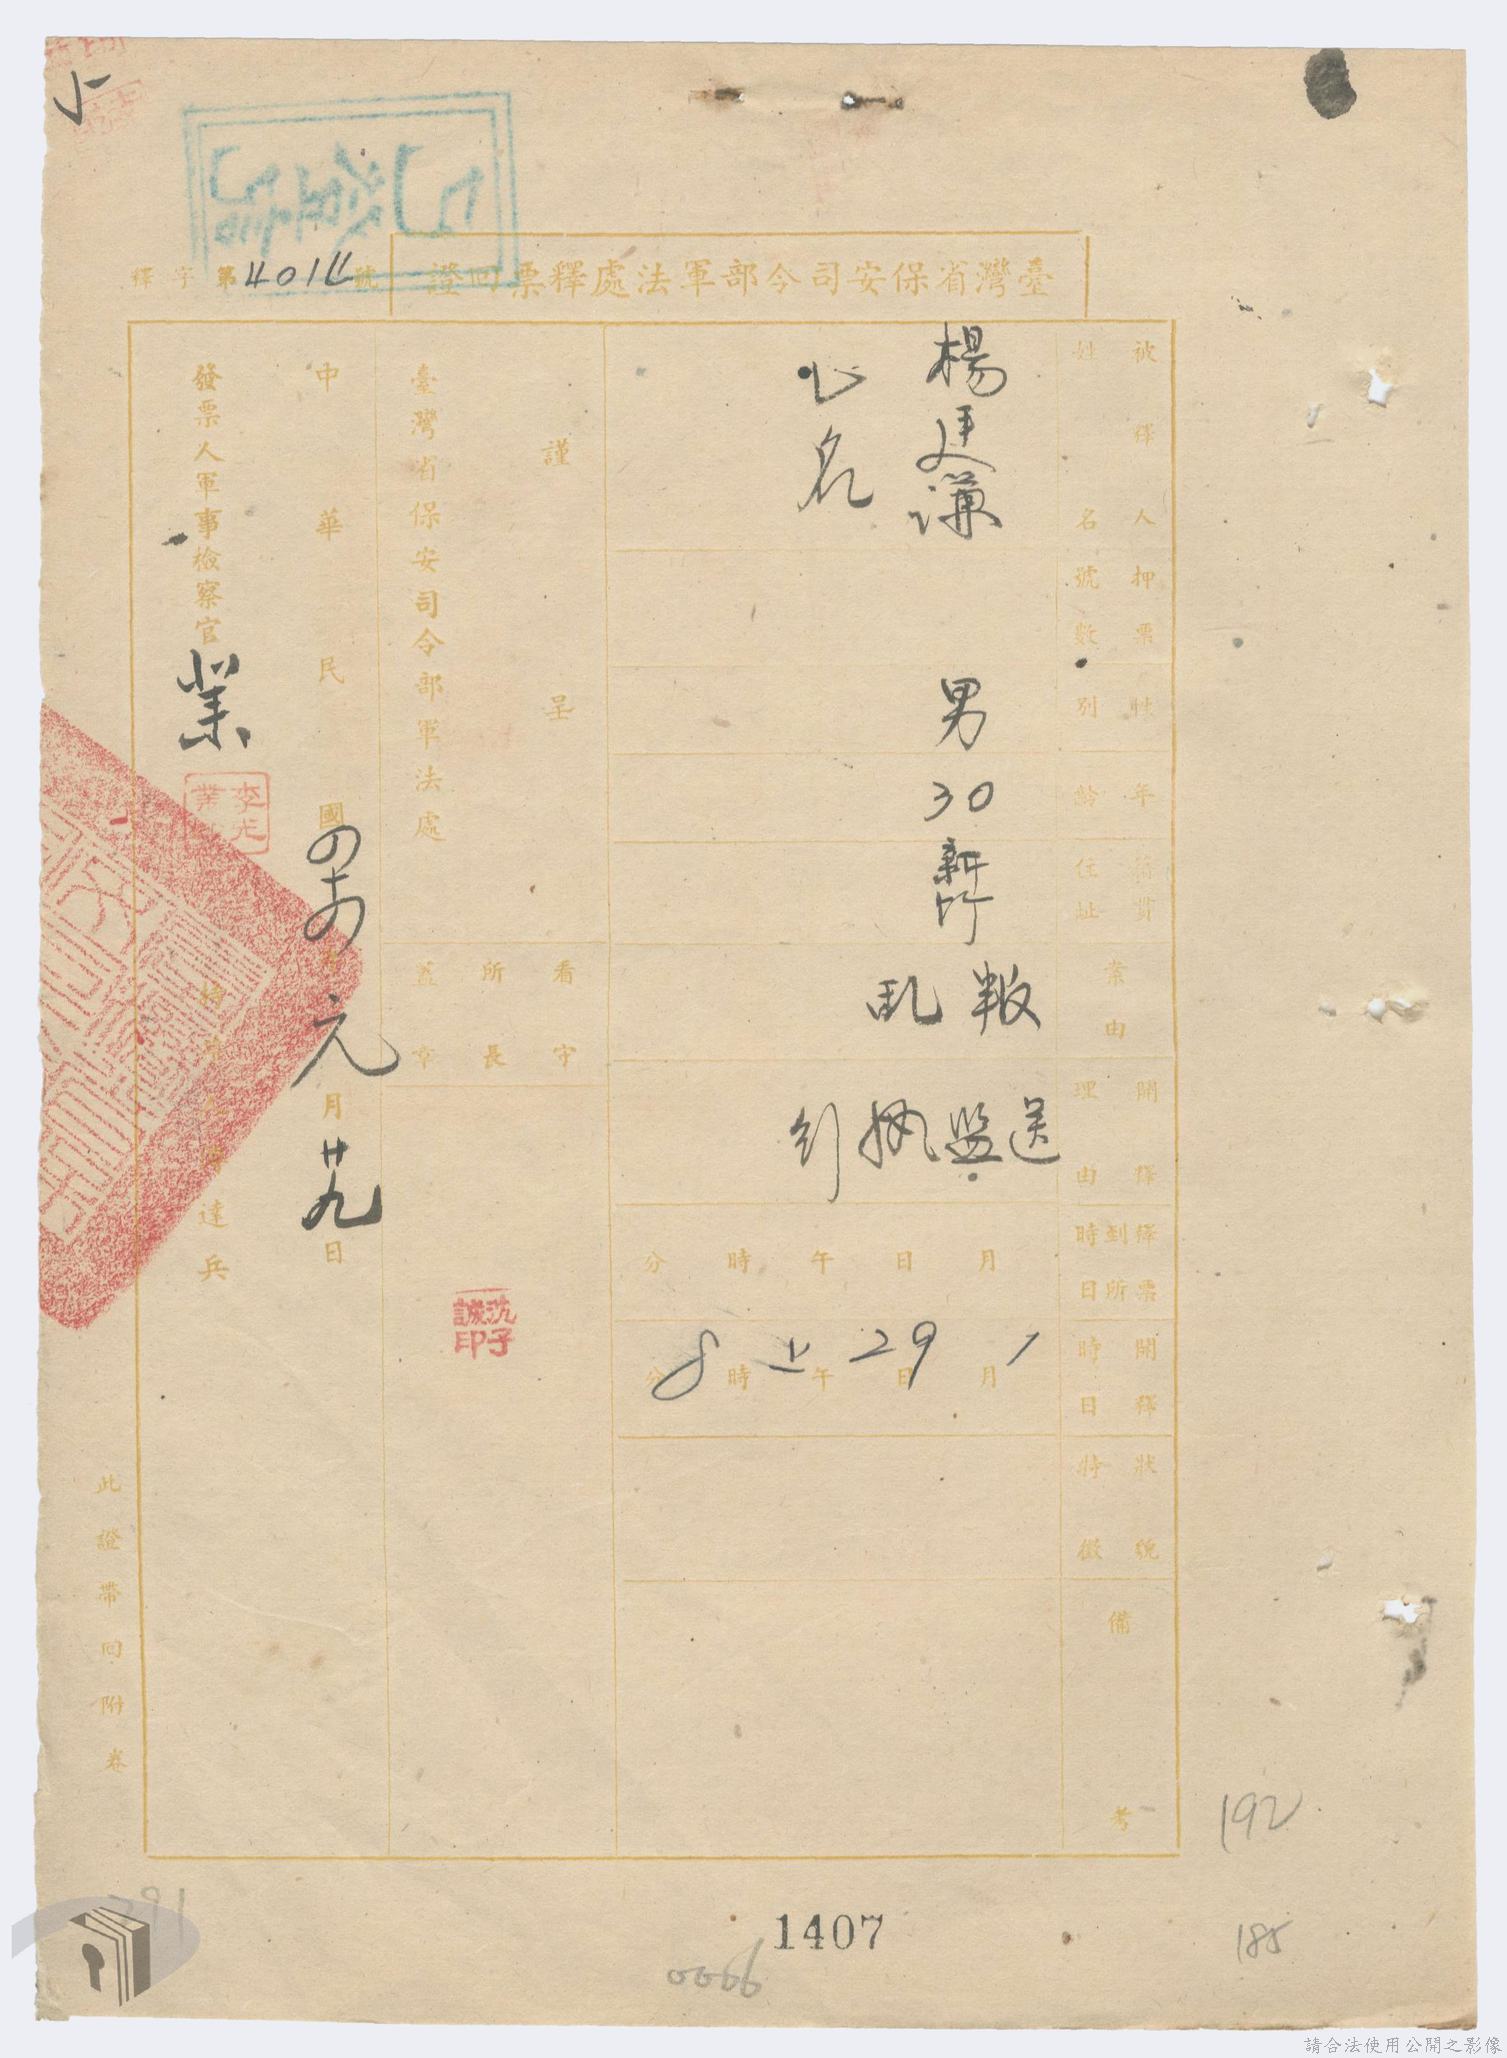 臺灣省保安司令部軍法處釋票回證
釋字第4014號
被釋人姓名
楊廷謙
七名
押票號數
性別
男
年齡
30
籍貫住址
新竹
案由
叛乱
開釋理由
送監執行
釋票到所時日
月 日 午 時 分
開釋時日
1月29日上午8時 分
狀貌特徵
備考
謹呈
臺灣省保安司令部軍法處
看守所長蓋章
沈子誠印
中華民國四十四年元月廿九日
發票人軍事檢察官
業
達兵
此證帶回附卷
192
185
1407
0066
請合法使用公開之影像